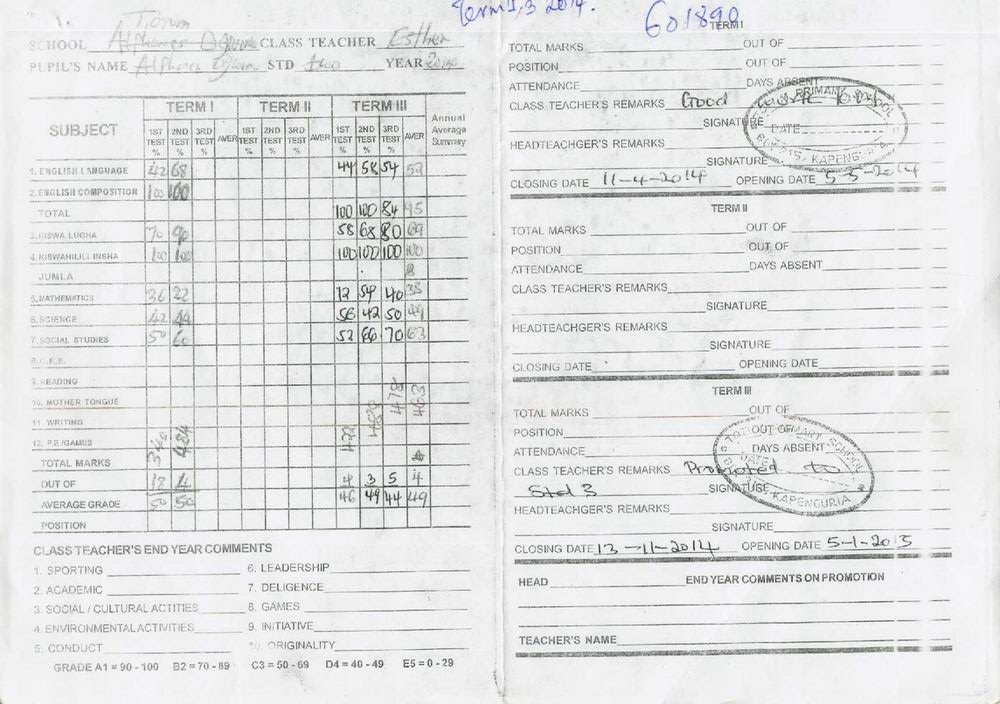 Term 1,3 2014.
601890
Torum
SCHOOL CLASS TEACHER Esther
PUPIL'S NAME Alphonce STD two YEAR 2014
SUBJECT TERM I TERM II TERM III Annual Average Summary
1ST TEST % 2ND TEST % 3RD TEST % AVER 1ST TEST % 2ND TEST % 3RD TEST % AVER 1ST TEST % 2ND TEST % 3RD TEST % AVER
1. ENGLISH LANGUAGE 42 68 44 58 54 52
2. ENGLISH COMPOSITION 100 100
TOTAL 100 100 84 95
3. KISWA LUGHA 70 90 58 68 80 69
4. KISWAHILILI INSHA 100 100 100 100 100 100
JUMLA
5. MATHEMATICS 36 22 12 54 40 35
6. SCIENCE 42 44 56 42 50 49
7. SOCIAL STUDIES 50 60 52 66 70 63
8. C.R.E.
9. READING
10. MOTHER TONGUE
11. WRITING
12. P.E/GAMES
TOTAL MARKS 484 478 463
OUT OF 4 3 5 4
AVERAGE GRADE 50 50 46 49 44 49
POSITION
CLASS TEACHER'S END YEAR COMMENTS
1. SPORTING 6. LEADERSHIP
2. ACADEMIC 7. DELIGENCE
3. SOCIAL / CULTURAL ACTITIES 8. GAMES
4. ENVIRONMENTAL ACTIVITIES 9. INITIATIVE
5. CONDUCT 10. ORIGINALITY
GRADE A1 = 90 - 100 B2 = 70 - 89 C3 = 50 - 69 D4 = 40 - 49 E5 = 0 - 29
TERM I
TOTAL MARKS OUT OF
POSITION OUT OF
ATTENDANCE DAYS ABSENT
CLASS TEACHER'S REMARKS Good
SIGNATURE
HEADTEACHGER'S REMARKS
SIGNATURE
PRIMARY SCHOOL
DATE
KAPENGURIA
CLOSING DATE 11-4-2014 OPENING DATE 5-5-2014
TERM II
TOTAL MARKS OUT OF
POSITION OUT OF
ATTENDANCE DAYS ABSENT
CLASS TEACHER'S REMARKS
SIGNATURE
HEADTEACHGER'S REMARKS
SIGNATURE
CLOSING DATE OPENING DATE
TERM III
TOTAL MARKS OUT OF
POSITION OUT OF
ATTENDANCE DAYS ABSENT
CLASS TEACHER'S REMARKS Promoted to
Std 3 SIGNATURE
PRIMARY SCHOOL
DATE
KAPENGURIA
HEADTEACHGER'S REMARKS
SIGNATURE
CLOSING DATE 13-11-2014 OPENING DATE 5-1-2015
HEAD END YEAR COMMENTS ON PROMOTION
TEACHER'S NAME